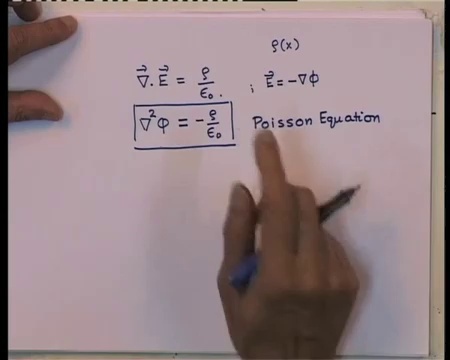 ρ(x)
∇⃗. E⃗ = ρ/ε₀. ; E⃗ = -∇Φ
∇²Φ = -ρ/ε₀ Poisson Equation